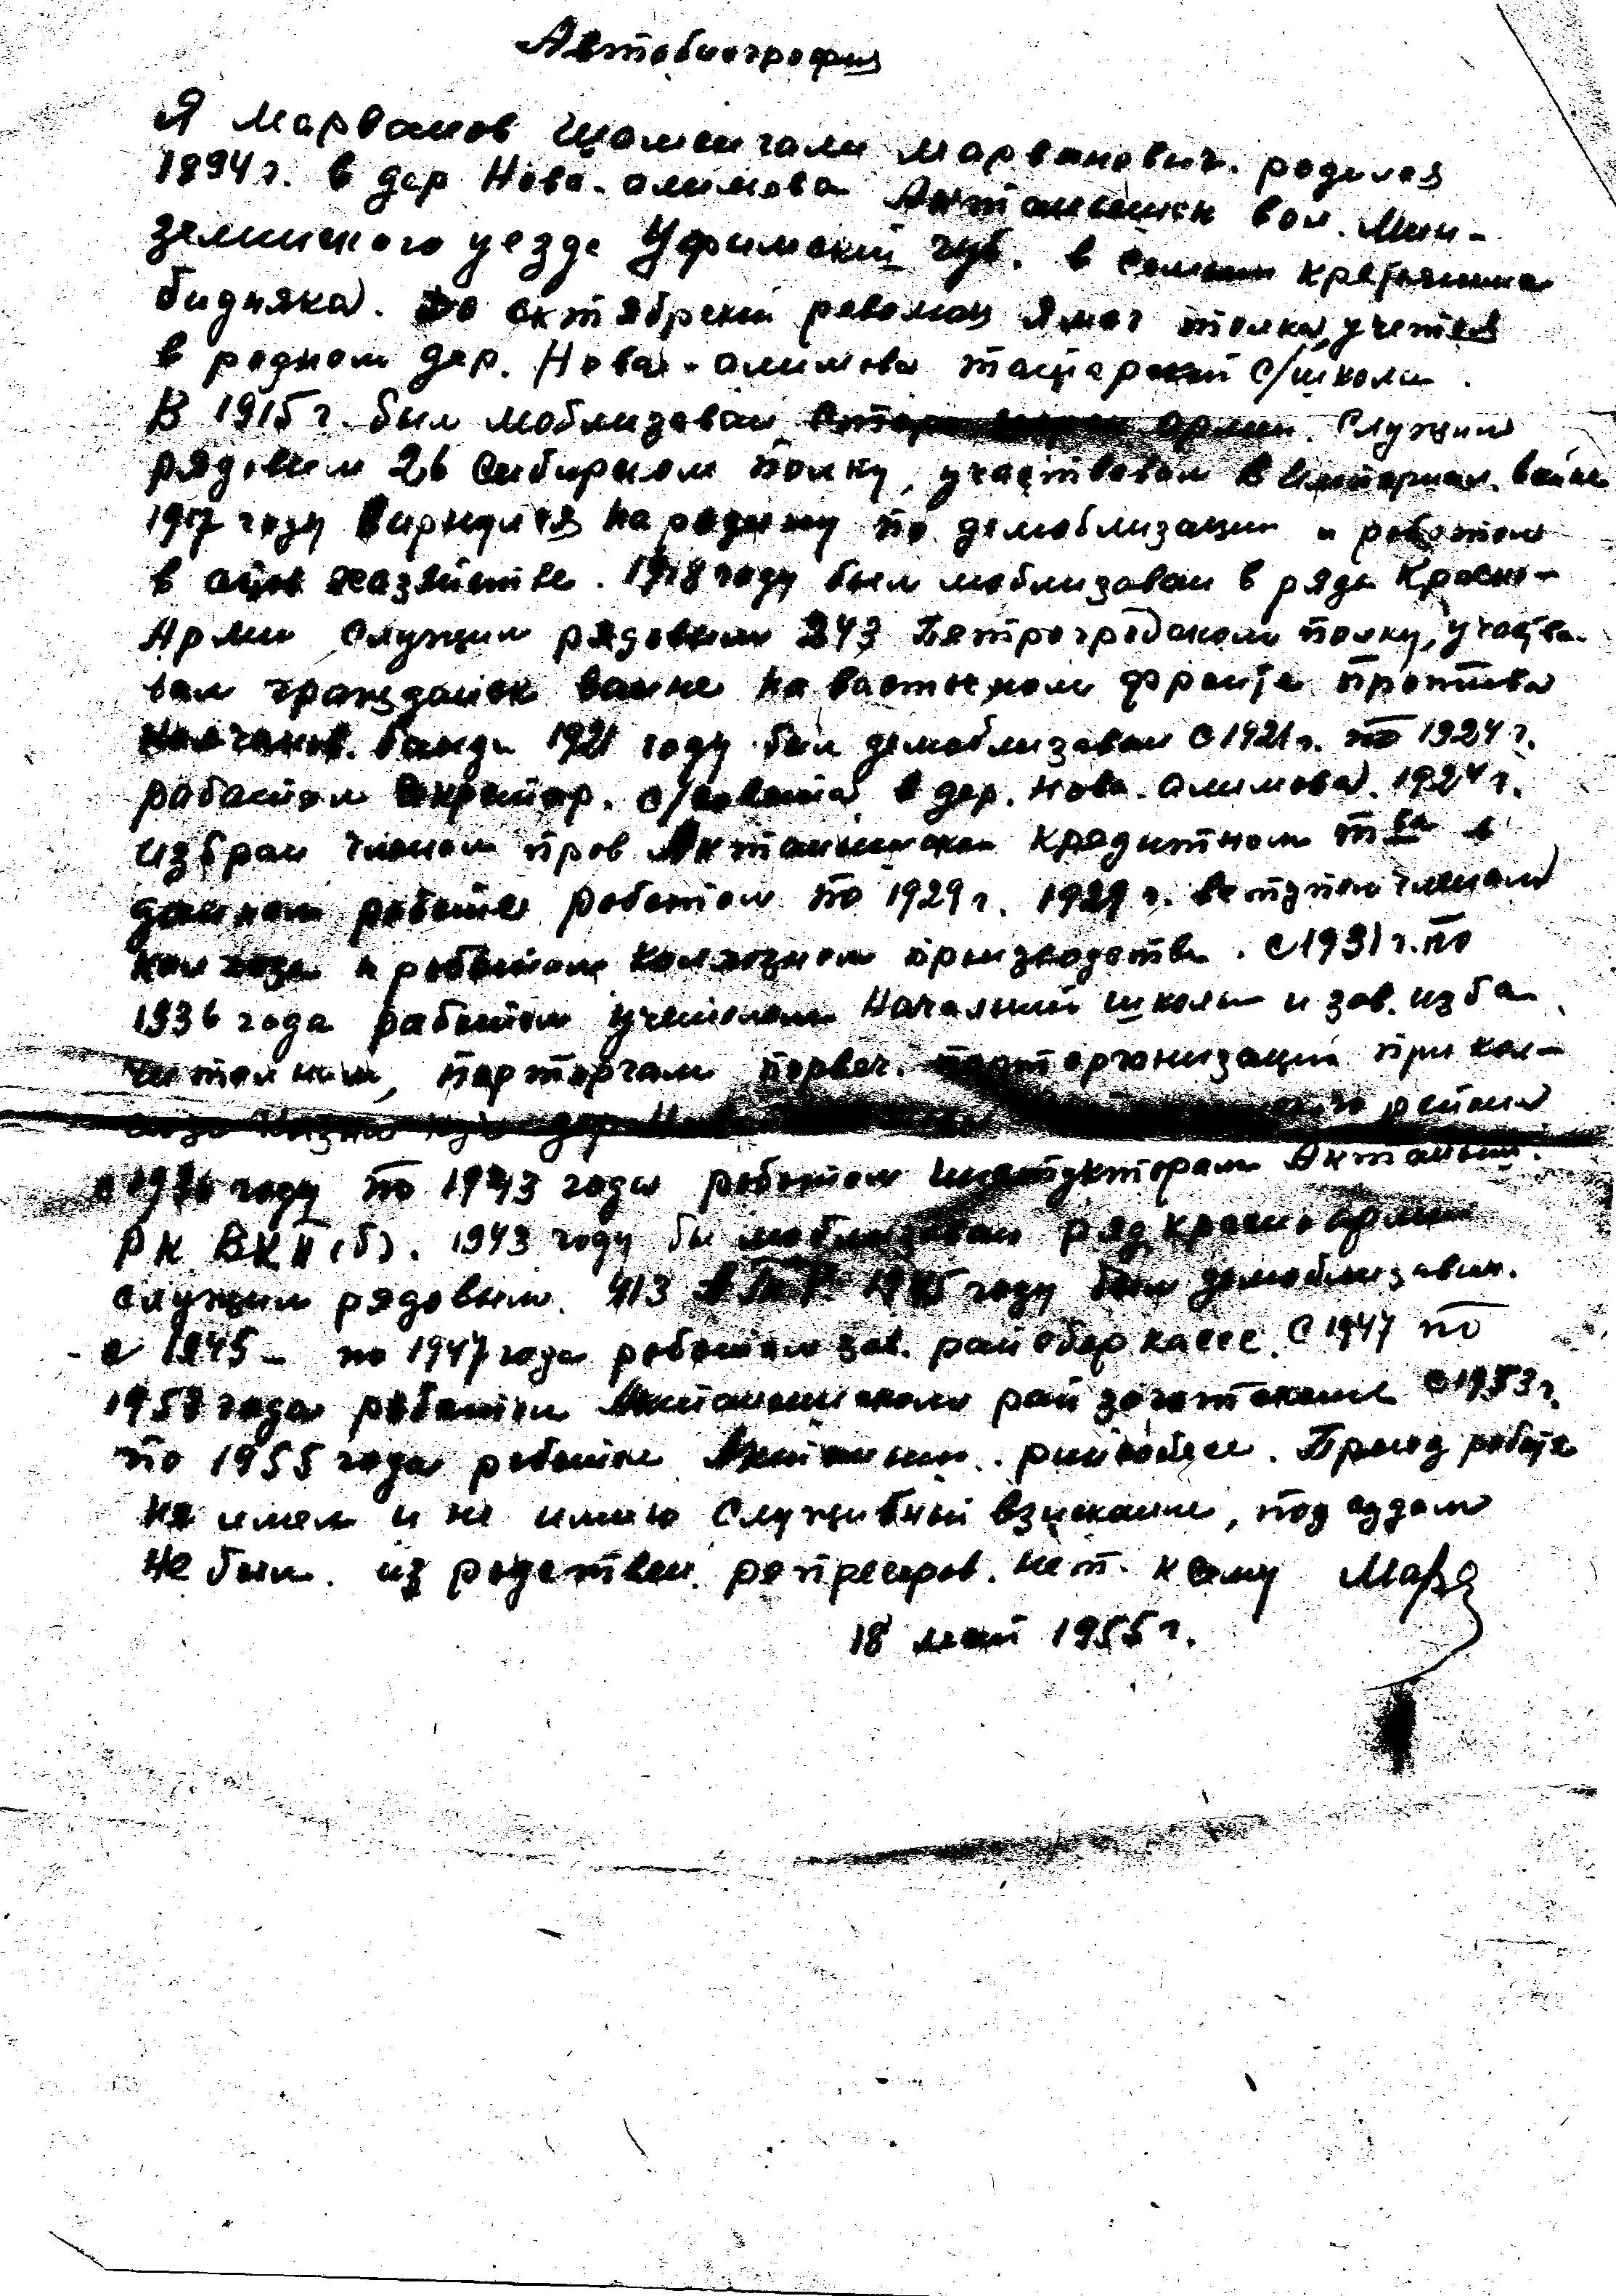 Автобиография
Я Марванов Шаменгали Марванович. родился
1894 г. в дер Нова-алимова Актанышск вол. Мин-
зелинского уезде Уфимский губ. в семьи крестьянина
бидняка. До октябрский революц я мог толка учется
в родном дер. Нова-алимова татарский с/школи.
В 1915 г. был моблизован армии. Служил
рядовым 26 Сибирском полку, участвовал в Империал. войне
1917 году вирнулся на родину по демоблизации и работал
в хазяйстве. 1918 году был моблизован в ряды Красно-
Армии служил рядовым 243 Петроградском полку, участво-
вал граждайск ваине на вастычном фронте против
Колчаков. банды 1921 году был демоблизован с 1921 г. по 1924 г.
работал секретар. с/совета в дер. Нова-алимова. 1924 г.
избран членом прав Актанышском кредитном т-ва в
данном работе работал по 1929 г. 1929 г. вступил членом
колхоза и работал колхозном производстве. с 1931 г. по
1936 года работал учителем Началний школы и зав. изба
читалним, парторгам первич. парторганизаций при кол-
хоза Кызыл дер Нова района
с 1936 году по 1943 года работал инструкторам Актаныш.
РК ВКП(б). 1943 году бы моблизован ряд красно армии
служил рядовым. 413 1945 году был демоблизован.
с 1945 - по 1947 года работал зав. райсбер кассе. С 1947 по
1953 года работал Актанышском рай заготскоме с 1953 г.
по 1955 года работал Актаныш. Приод работе
не имел и не имею служибный взыскание, под судом
не был. из родствен. репрессиров. нет. к сему Марв
18 май 1955 г.